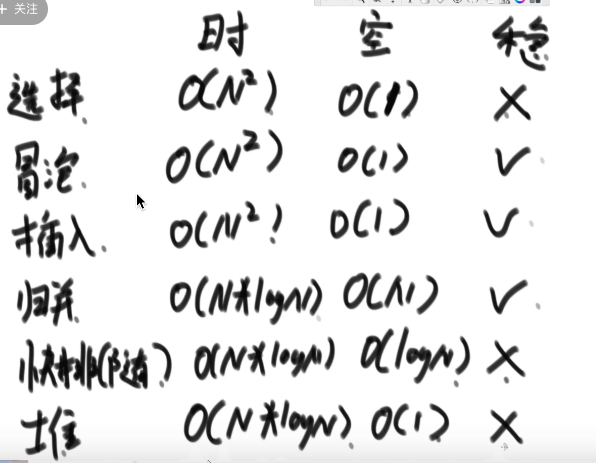 + 关注
时 空 稳
选择 O(N²) O(1) X
冒泡 O(N²) O(1) √
插入 O(N²) O(1) √
归并 O(N*logN) O(N) √
快排(随) O(N*logN) O(logN) X
堆 O(N*logN) O(1) X